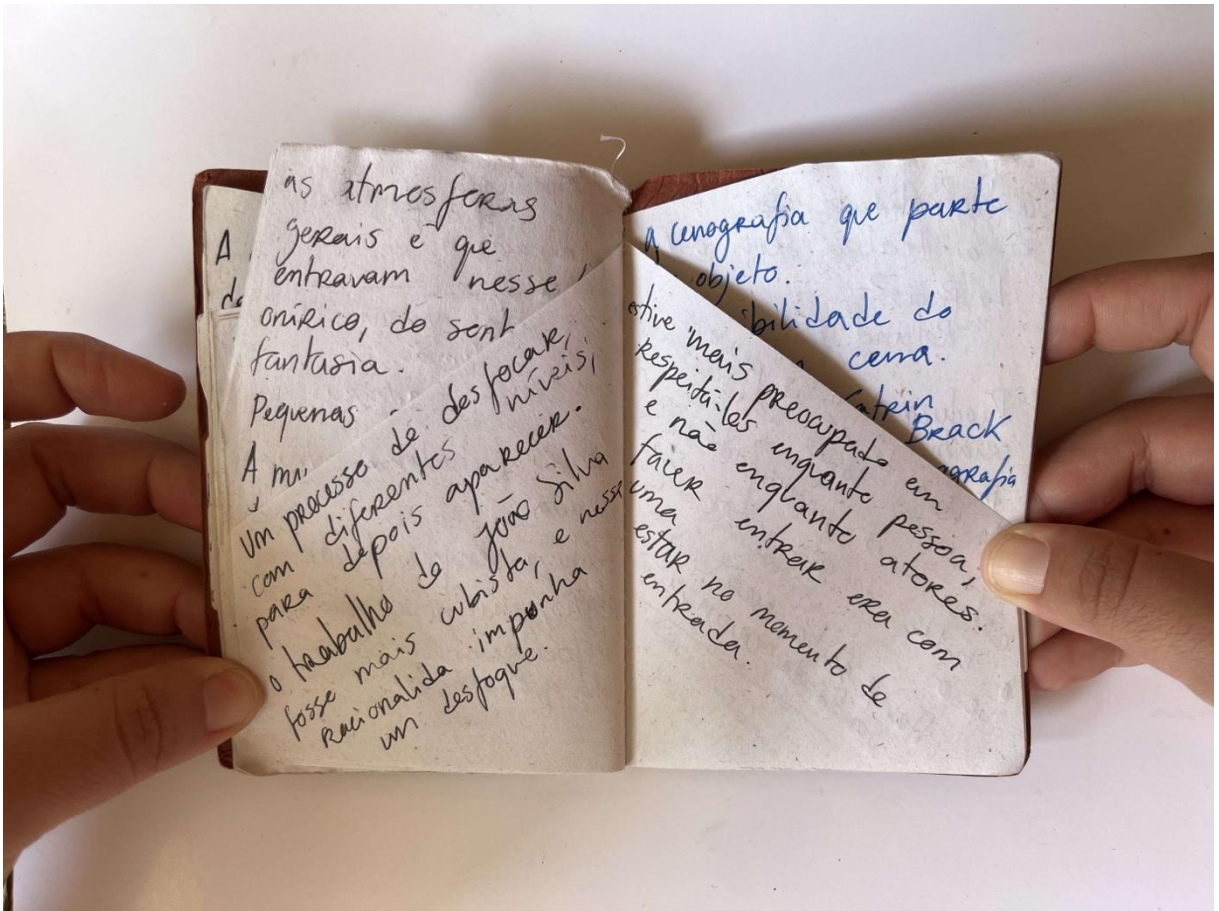 A
do
as atmosferas
gerais é que
entravam nesse
onírico, do sent
fantasia.
Pequenas
A mu
Um processo de desfocar,
com diferentes níveis,
para depois aparecer.
o trabalho do João Silva
fosse mais cubista, e nesse
racionalida imponha
um desfoque.
A cenografia que parte
objeto.
bilidade do
cena.
Catrin
Brack
ografia
estive mais preocupado em
respeitá-los enquanto pessoa,
e não enquanto atores.
fazer entrar era com
uma
estar no momento de
entrada.